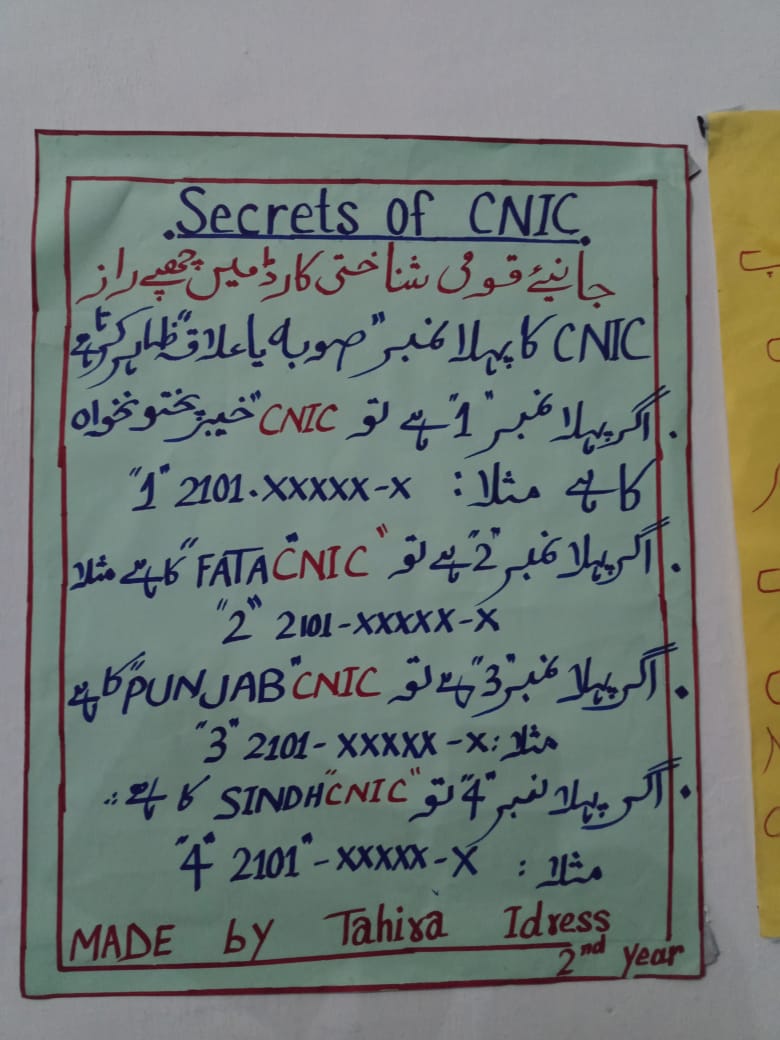 Secrets of CNIC
جانیئے قومی شناختی کارڈ میں چھپے راز
CNIC کا پہلا نمبر "صوبہ یا علاقہ" ظاہر کرتا ہے
. اگر پہلا نمبر "1" ہے تو CNIC "خیبر پختونخواہ
کا ہے مثلا : "1" 2101-XXXXX-X
. اگر پہلا نمبر "2" ہے تو "CNIC" FATA" کا ہے مثلا
"2" 2101-XXXXX-X
. اگر پہلا نمبر "3" ہے تو CNIC "PUNJAB" کا ہے
مثلا : "3" 2101-XXXXX-X
. اگر پہلا نمبر "4" تو "CNIC" SINDH کا ہے :.
مثلا : "4" 2101"-XXXXX-X
MADE by Tahira Idress
2nd year